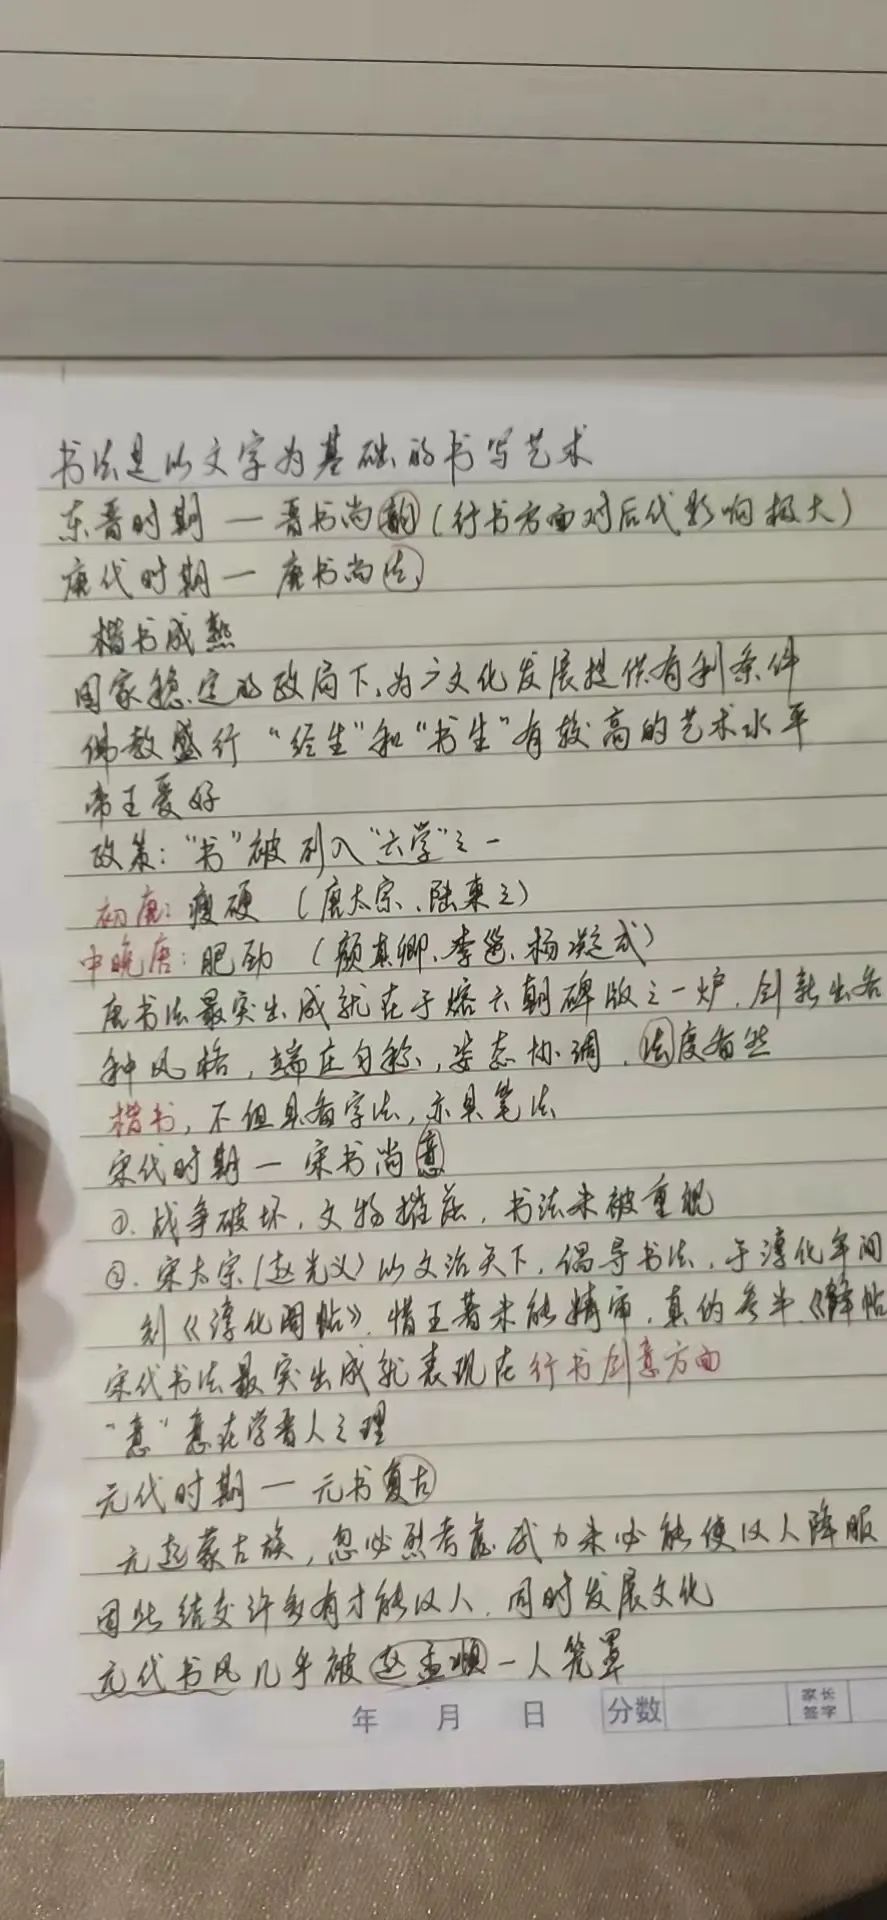 书法是以文字为基础的书写艺术
东晋时期 — 晋书尚韵(行书方面对后代影响极大)
唐代时期 — 唐书尚法
楷书成熟
国家稳定的政局下,为广文化发展提供有利条件
佛教盛行 "经生"和"书生"有较高的艺术水平
帝王爱好
政策:"书"被列入"六学"之一
初唐:瘦硬 (唐太宗、陆柬之)
中晚唐:肥劲 (颜真卿、李邕、杨凝式)
唐书法最突出成就在于熔六朝碑版之一炉,创新出各
种风格,端庄匀称,姿态协调,法度备然
楷书,不但具备字法,亦具笔法
宋代时期 — 宋书尚意
①.战争破坏,文物摧&#8203;,书法未被重视
②.宋太宗(赵光义)以文治天下,倡导书法,于淳化年间
刻《淳化阁帖》,惜王著未能精审,真伪参半《绛帖
宋代书法最突出成就表现在行书创意方面
"意"意在学晋人之理
元代时期 — 元书复古
元起蒙古族,忽必烈考虑武力未必能使汉人降服
因此结交许多有才能汉人,同时发展文化
元代书风几乎被赵孟頫一人笼罩
年 月 日 分数 家长签字